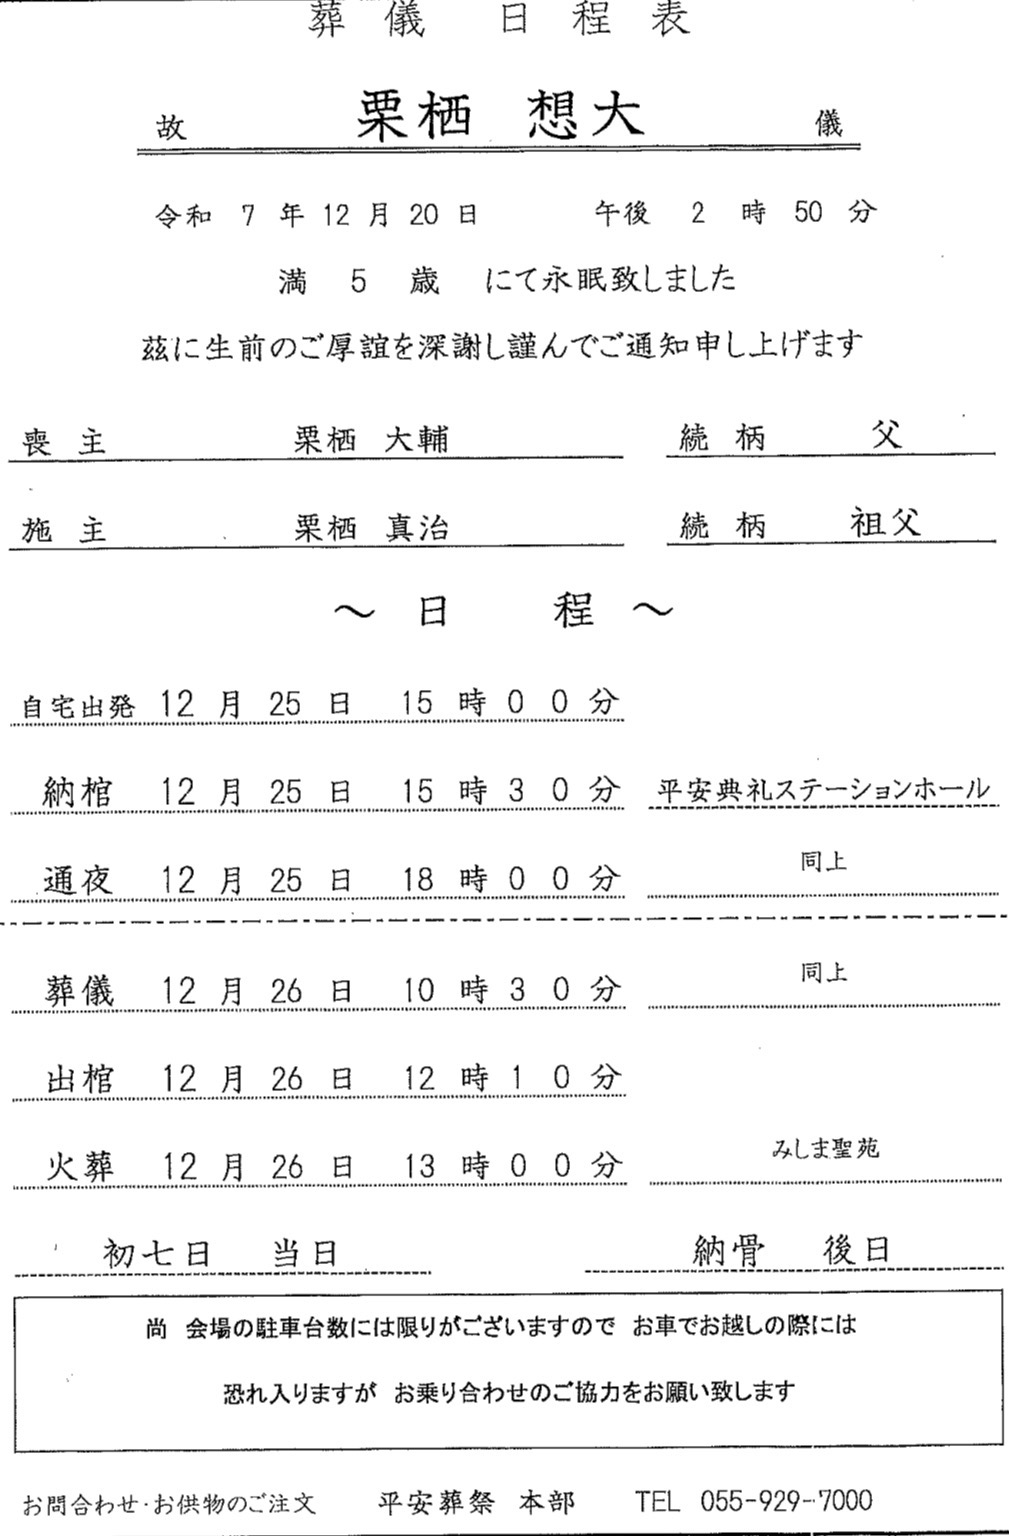 葬儀 日程表
故 栗栖 想大 儀
令和 7 年 12 月 20 日 午後 2 時 50 分
満 5 歳 にて永眠致しました
茲に生前のご厚誼を深謝し謹んでご通知申し上げます
喪 主 栗栖 大輔 続 柄 父
施 主 栗栖 真治 続 柄 祖父
～ 日 程 ～
自宅出発 12 月 25 日 15 時 0 0 分
納棺 12 月 25 日 15 時 3 0 分 平安典礼ステーションホール
通夜 12 月 25 日 18 時 0 0 分 同上
葬儀 12 月 26 日 10 時 3 0 分 同上
出棺 12 月 26 日 12 時 1 0 分
火葬 12 月 26 日 13 時 0 0 分 みしま聖苑
初七日 当日 納骨 後日
尚 会場の駐車台数には限りがございますので お車でお越しの際には
恐れ入りますが お乗り合わせのご協力をお願い致します
お問合わせ·お供物のご注文 平安葬祭 本部 TEL 055-929-7000